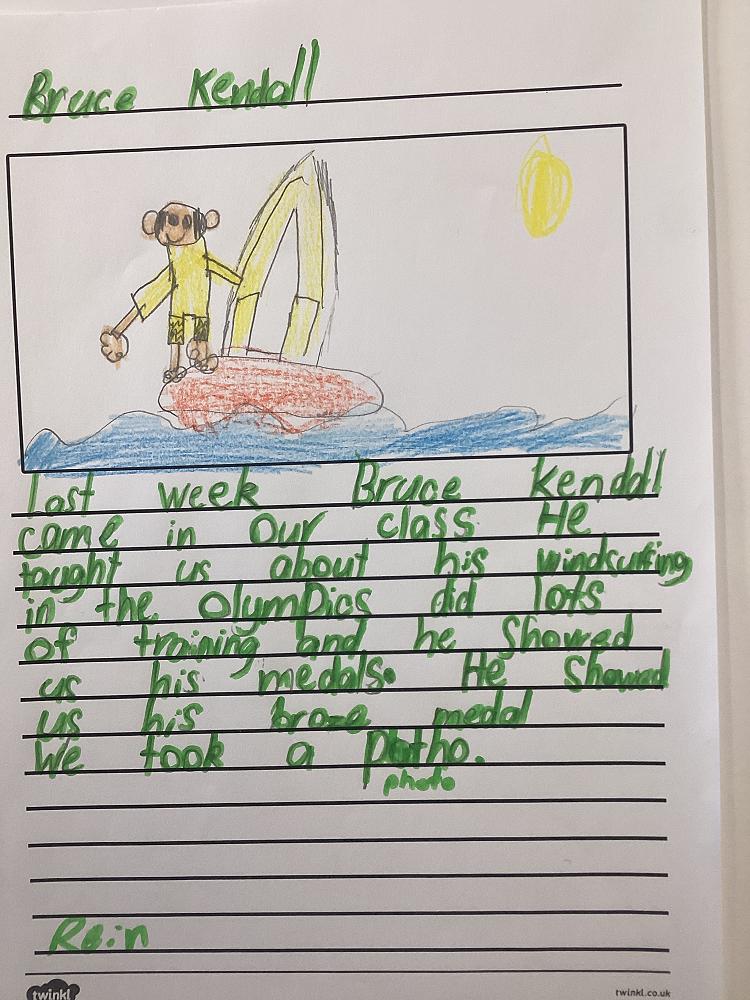 Bruce Kendall
Last week Bruce Kendall
came in our class. He
taught us about his windsurfing
in the Olympics did lots
of training and he showed
us his medals. He showed
us his broze medal
We took a Photho.
photo
Rein
twinkl
twinkl.co.uk